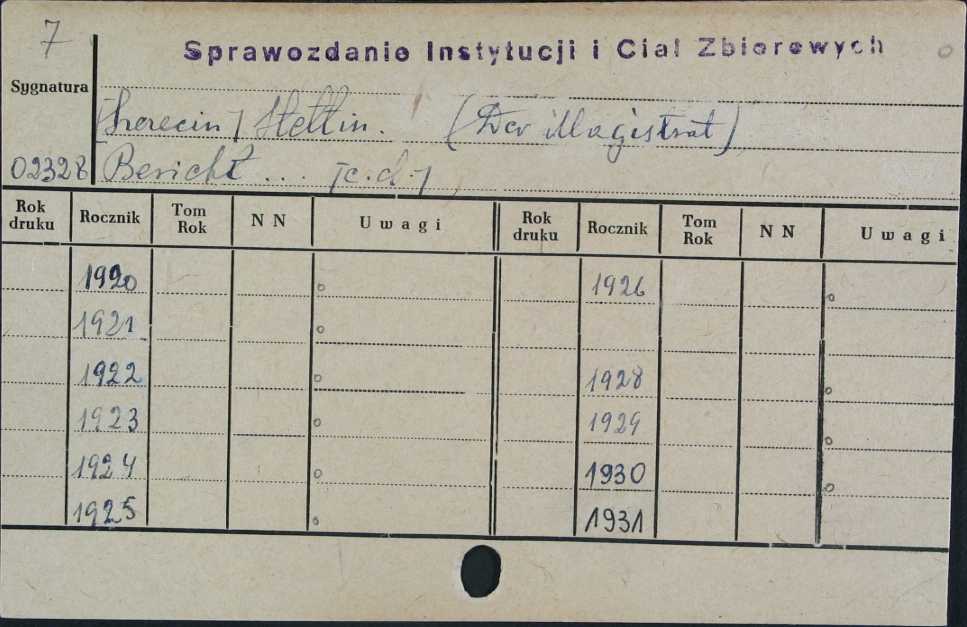 7
Sprawozdanie Instytucji i Ciał Zbiorowych
Sygnatura
[Szczecin] Stettin. (Der Magistrat)
02328 Bericht ... [c.d.]
Rok druku Rocznik Tom Rok N N Uwagi Rok druku Rocznik Tom Rok N N Uwagi
1920 1926
1921
1922 1928
1923 1929
1924 1930
1925 1931